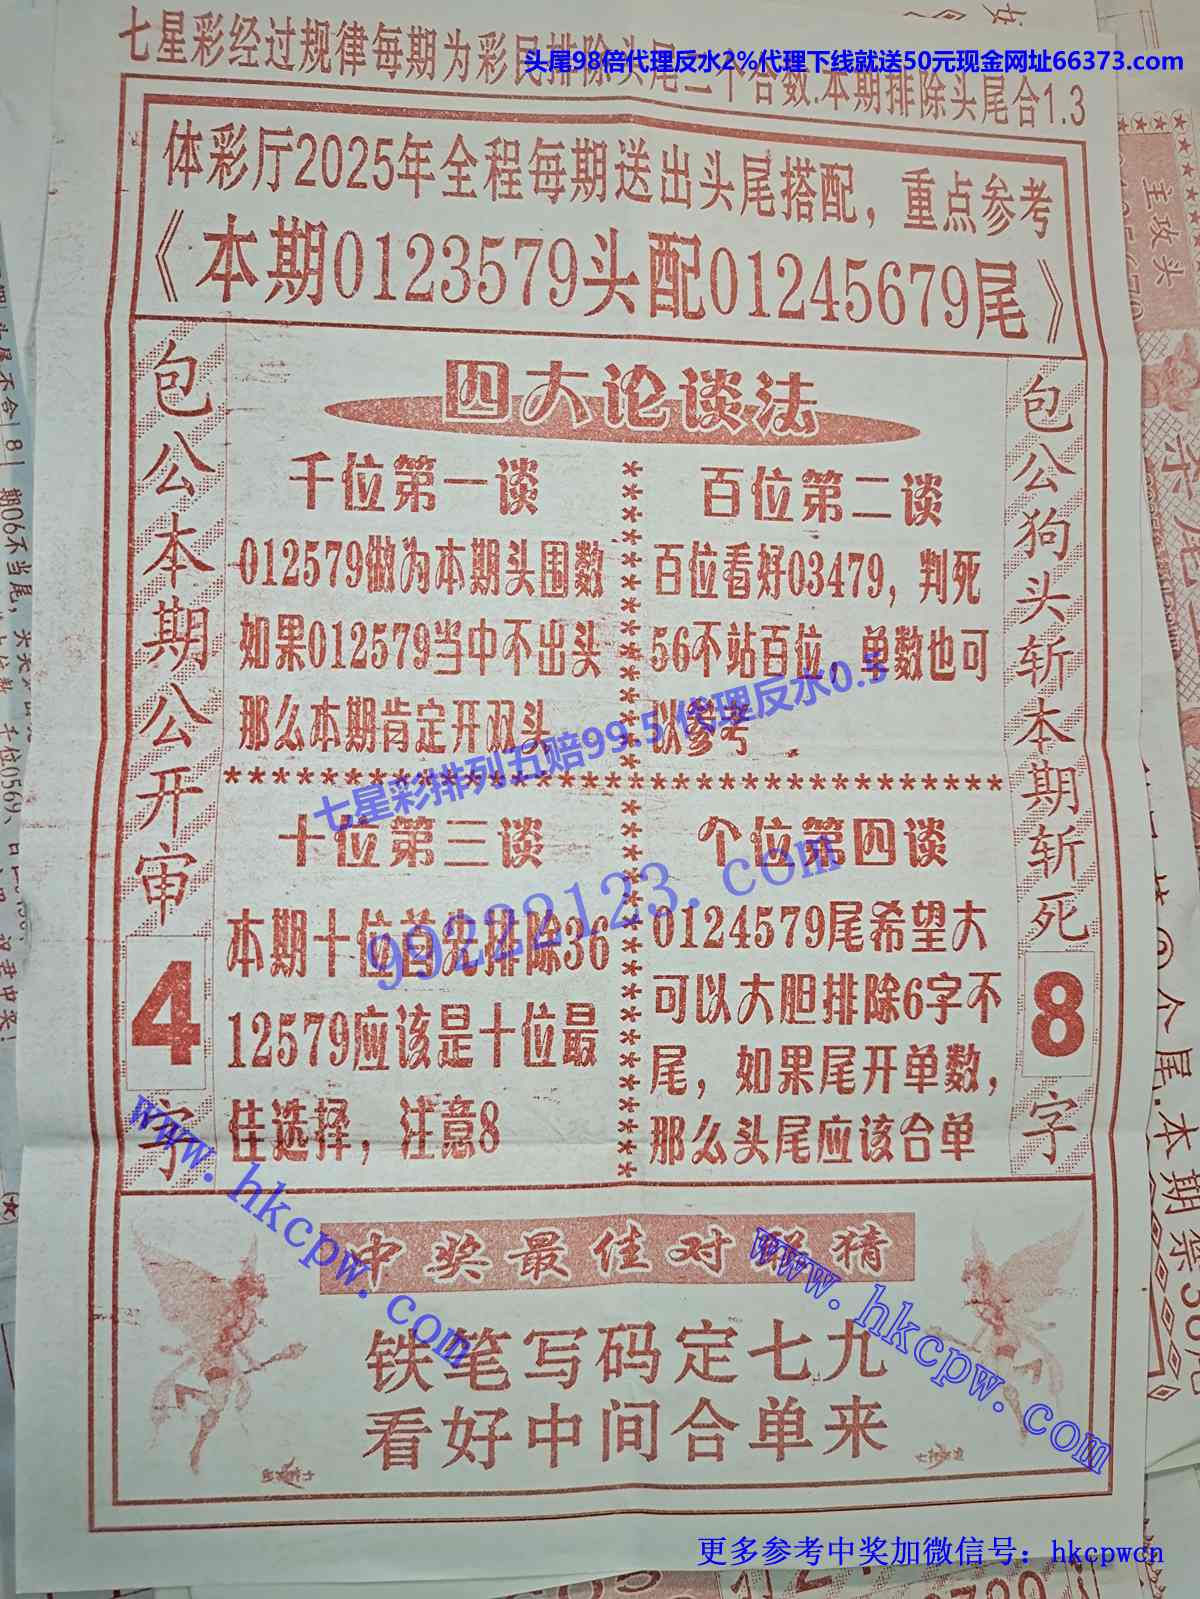 头尾98倍代理反水2%代理下线就送50元现金网址66373.com
七星彩经过规律每期为彩民排除头尾二个合数.本期排除头尾合1.3
体彩厅2025年全程每期送出头尾搭配，重点参考
《本期0123579头配01245679尾》
包公本期公开审4字
四大论谈法
千位第一谈
012579做为本期头围数
如果012579当中不出头
那么本期肯定开双头
百位第二谈
百位看好03479，判死
56不站百位，单数也可
以参考
七星彩排列五赔99.5 代理反水0.5
十位第三谈
本期十位首先排除36
12579应该是十位最
佳选择，注意8
99222123.com
个位第四谈
0124579尾希望大
可以大胆排除6字不
尾，如果尾开单数，
那么头尾应该合单
包公狗头斩本期斩死8字
www.hkcpw.com
www.hkcpw.com
中奖最佳对联猜
铁笔写码定七九
看好中间合单来
更多参考中奖加微信号：hkcpwcn
主攻头